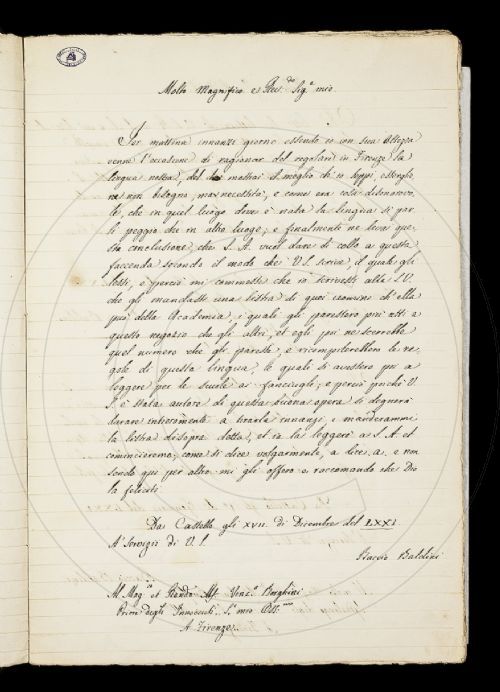 Molto Magnifico e Rev.do Sig.r mio
Ier mattina innanzi giorno essendo io con sua Altezza
venne l'occasione di ragionar del regolare in Firenze la
lingua nostra, del che mostrai il meglio ch'io seppi, esserglie
ne non bisogno, ma necessità, e come era cosa disonorevo,
le, che in quel luogo dove è nata la lingua si par
li peggio che in altro luogo, e finalmente ne levai que,
sta conclusione, che S. A. vuol dare di collo a questa
faccenda secondo il modo che V. S. scrive, il quale gli
lessi, e perciò mi commette che io scrivessi alla S. V.
che gli mandasse una listra di quei uomini ch'ella
può della Academia, i quali gli paressero più atti a
questo negozio che gli altri, et egli poi ne scerrebbe
quel numero che gli paresse, e ricompilerebbero le re,
gole di questa lingua, le quali si avessero poi a
leggere per le scuole ai fanciugli; e perciò poichè V.
S. è stata autore di questa buona opera si degnerà
durare interamente a tirarla innanzi, e manderammi
la listra disopra detta, et io la leggerò a S. A. et
cominceremo, come si dice volgarmente, a dire a, e non
sendo qui per altro mi gli offero e raccomando che Dio
la feliciti
Da Castello gli XVII. di Dicembre del LXXI.
A' Servigio di V. S.
Baccio Baldini
Al Mag.co et Revndo Mr. Vinc.o Borghini
Priore degli Innocenti S.or mio Oss.mo
A Firenze.